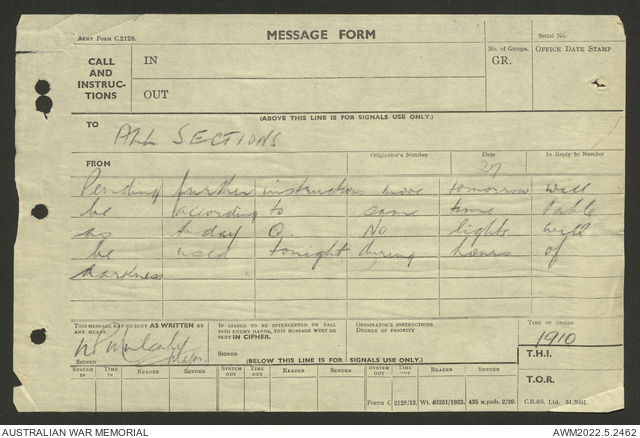 ARMY FORM C.2128.
MESSAGE FORM
Serial No.
CALL AND INSTRUC-TIONS
IN
OUT
No. of Groups.
GR.
OFFICE DATE STAMP
(ABOVE THIS LINE IS FOR SIGNALS USE ONLY.)
TO
ALL SECTIONS
FROM
Originator's Number
Date
27
In Reply to Number
Pending further instructions move tomorrow will
be according to same time table
as to-day O. No lights will
be used tonight during hours of
darkness
THIS MESSAGE MAY BE SENT AS WRITTEN BY ANY MEANS.
SIGNED
IF LIABLE TO BE INTERCEPTED OR FALL INTO ENEMY HANDS, THIS MESSAGE MUST BE SENT IN CIPHER.
SIGNED
ORIGINATOR'S INSTRUCTIONS
DEGREE OF PRIORITY
TIME OF ORIGIN
1910
T.H.I.
T.O.R.
(BELOW THIS LINE IS FOR SIGNALS USE ONLY.)
SYSTEM IN TIME IN READER SENDER SYSTEM OUT TIME OUT READER SENDER SYSTEM OUT TIME OUT READER SENDER
FORMS C 2128/13. Wt. 40351/1933. 435 m.pads. 2/39. C.B.&S. Ltd. 51.3091.
AUSTRALIAN WAR MEMORIAL
AWM2022.5.2462